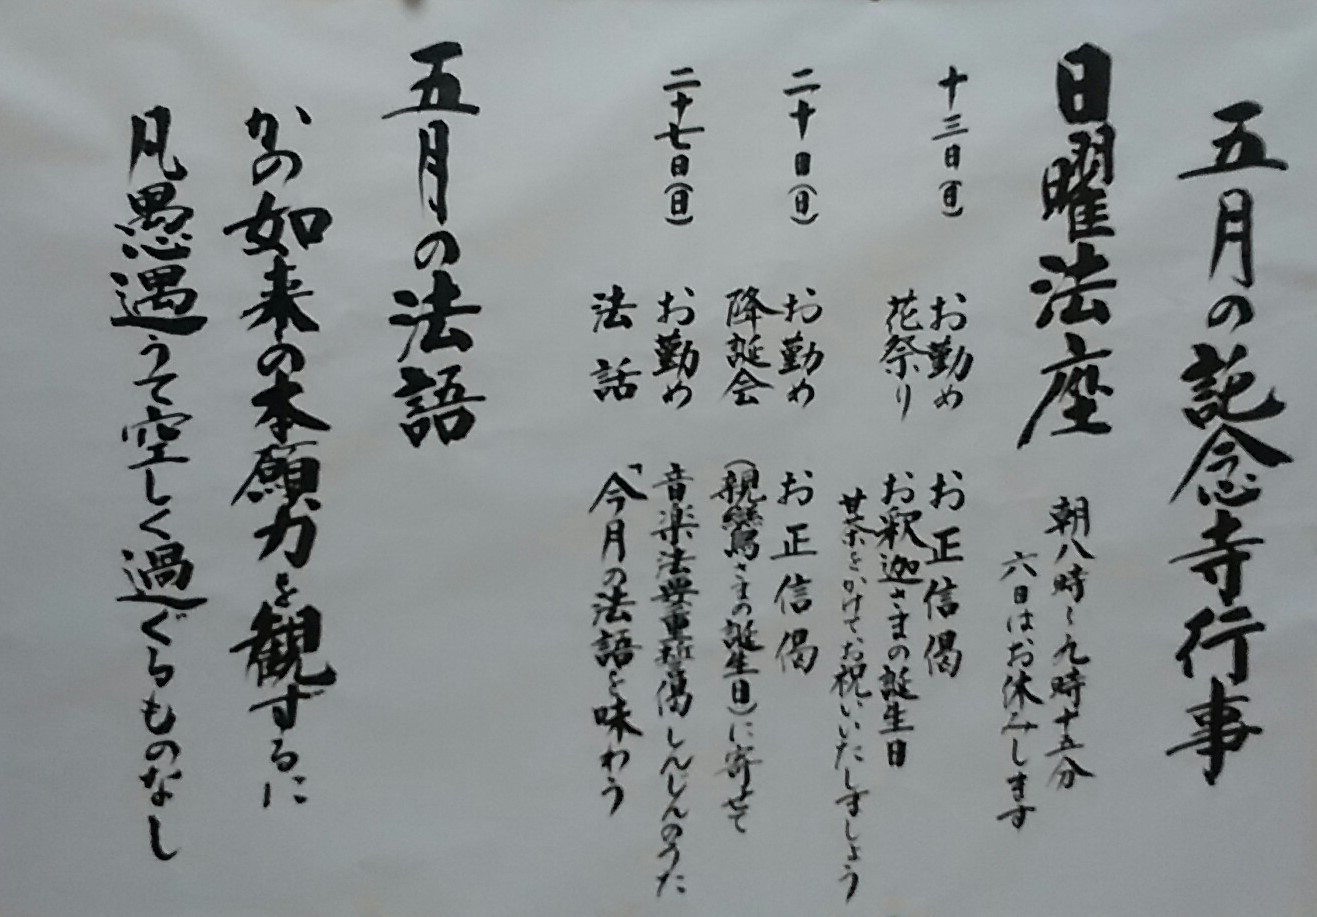 五月の記念寺行事
日曜法座
朝八時〜九時十五分
六日はお休みします
十三日(日)
お勤め お正信偈
花祭り お釈迦さまの誕生日
甘茶をかけてお祝いいたしましょう
二十日(日)
お勤め お正信偈
降誕会 (親鸞さまの誕生日)に寄せて
二十七日(日)
お勤め 音楽法要重誓偈 しんじんのうた
法話 「今月の法語を味わう
五月の法語
かの如来の本願力を観ずるに
凡愚遇うて空しく過ぐるものなし